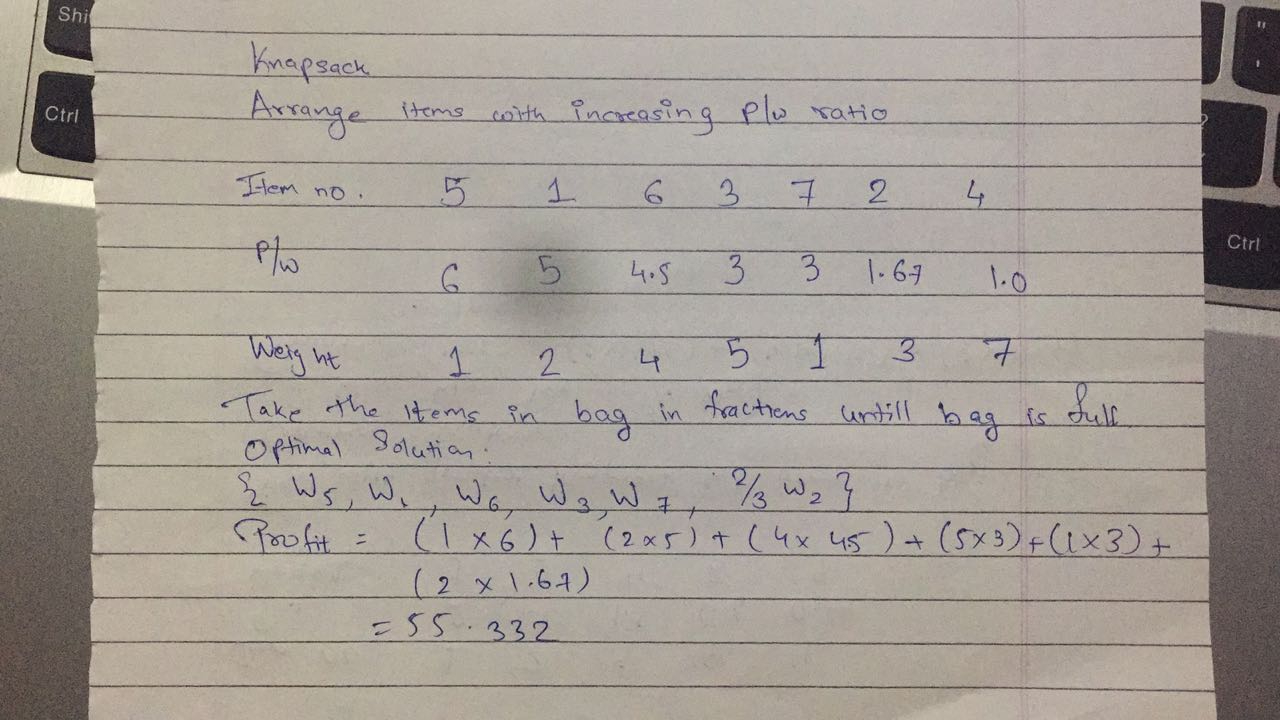 Shi
Ctrl
"
'
?
Ctrl
Knapsack
Arrange items with increasing P/w ratio
Item no. 5 1 6 3 7 2 4
P/w 6 5 4.5 3 3 1.67 1.0
Weight 1 2 4 5 1 3 7
Take the items in bag in fractions untill bag is full
Optimal Solution:
{ W5, W1, W6, W3, W7, 2/3 W2 }
Profit = (1 x 6) + (2x5) + (4x 45) + (5x3) + (1x3) +
(2 x 1.67)
= 55.332